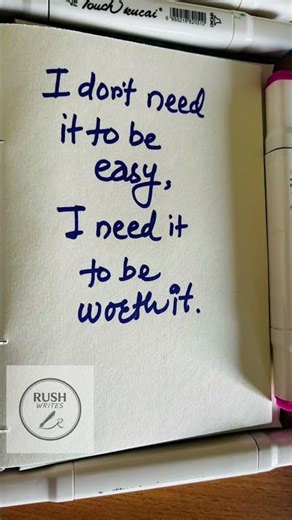 Touch
I don't need
it to be
easy,
I need it
to be
worth it.
RUSH
WRITES
R